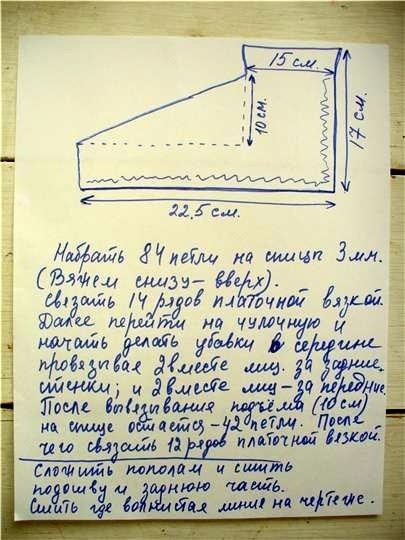 15 см.
10 см.
17 см.
22,5 см.
Набрать 84 петли на спицы 3 мм.
(Вяжем снизу-вверх).
Связать 14 рядов платочной вязкой.
Далее перейти на чулочную и
начать делать убавки в середине
провязывая 2 вместе лиц. за задние
стенки; и 2 вместе лиц - за передние.
После вывязывания подъёма (10 см)
на спице остается - 42 петли. После
чего связать 12 рядов платочной вязкой.
Сложить пополам и сшить
подошву и заднюю часть.
Сшить где волнистая линие на чертеже.